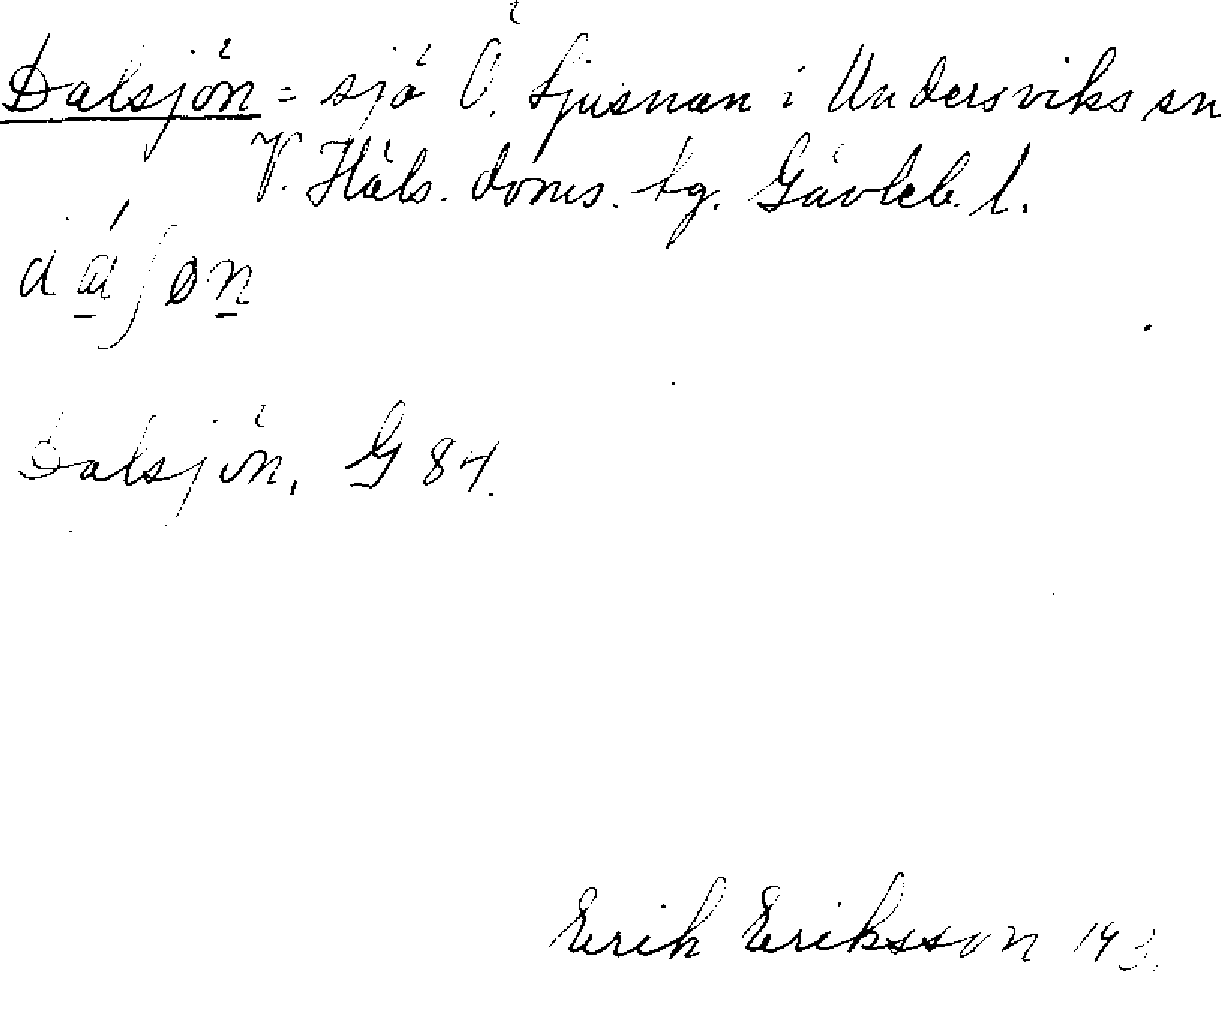 Dalsjön = sjö Ö. Ljusnan i Undersviks sn
V. Häls. doms. tg. Gävleb. l.
dá̱ʃøn̠
Dalsjön, G 84.
Erik Eriksson